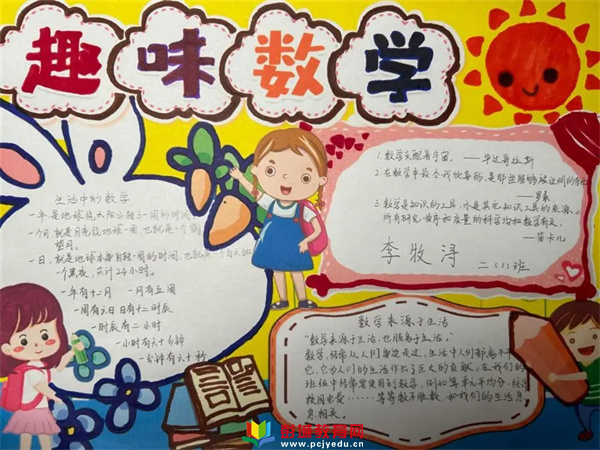 趣味数学
生活中的数学
一年是地球绕太阳公转一周的时间
一个月,就是月亮绕地球一周,也就是一个
望月。
一日,就是地球本身自转一周的时间,也就是一个白天
一个黑夜,共计24小时。
一年有十二月 一月有五周
一周有六日日有十二时辰
一时辰有二小时
一小时有六十分钟
一分钟有六十秒
1.数学支配着宇宙。——毕达哥拉斯
2.在数学中最令我欣喜的,是那些能够被证明的
——罗素
3.数学是知识的工具,亦是其它知识工具的泉源。
所有研究顺序和度量的科学均和数学有关。
——笛卡儿
李牧浔
二(1)班
数学来源于生活
"数学来源于生活,也服务于生活。"
数学,经常从人们身边走过,生活中人们都离不开
它,它也为人们的生活作出了巨大的贡献。在我们的
班级中经常需要用到数学,例如算单人平均分,统计
校园电费……等等数不胜数,和我们的生活息
息相关。
智博教育网
www.pcjyedu.cn